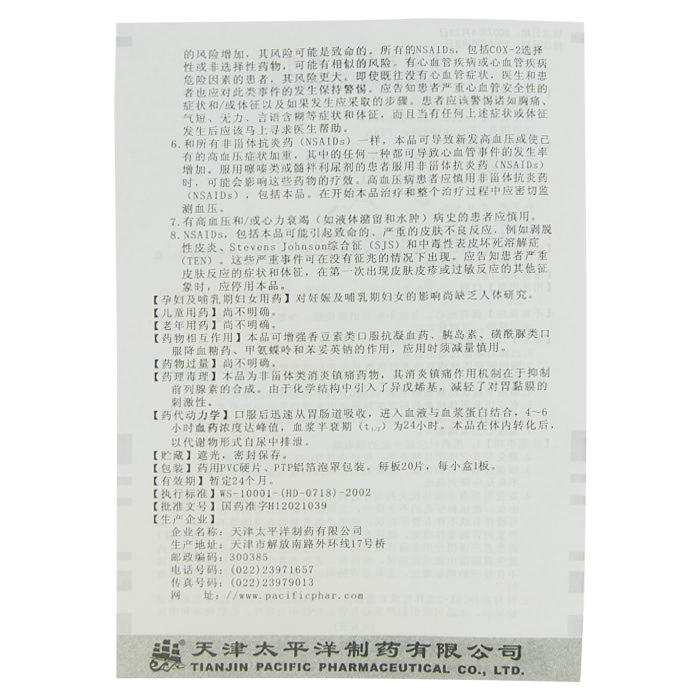 的风险增加，其风险可能是致命的。所有的NSAIDs，包括COX-2选择
性或非选择性药物，可能有相似的风险。有心血管疾病或心血管疾病
危险因素的患者，其风险更大。即使既往没有心血管症状，医生和患
者也应对此类事件的发生保持警惕。应告知患者严重心血管安全性的
症状和/或体征以及如果发生应采取的步骤。患者应该警惕诸如胸痛、
气短、无力、言语含糊等症状和体征，而且当有任何上述症状或体征
发生后应该马上寻求医生帮助。
6.和所有非甾体抗炎药（NSAIDs）一样，本品可导致新发高血压或使已
有的高血压症状加重，其中的任何一种都可导致心血管事件的发生率
增加。服用噻嗪类或髓袢利尿剂的患者服用非甾体抗炎药（NSAIDs）
时，可能会影响这些药物的疗效。高血压病患者应慎用非甾体抗炎药
（NSAIDs），包括本品。在开始本品治疗和整个治疗过程中应密切监
测血压。
7.有高血压和/或心力衰竭（如液体潴留和水肿）病史的患者应慎用。
8.NSAIDs，包括本品可能引起致命的、严重的皮肤不良反应，例如剥脱
性皮炎、Stevens Johnson综合征（SJS）和中毒性表皮坏死溶解症
（TEN）。这些严重事件可在没有征兆的情况下出现。应告知患者严重
皮肤反应的症状和体征，在第一次出现皮肤皮疹或过敏反应的其他征
象时，应停用本品。
【孕妇及哺乳期妇女用药】对妊娠及哺乳期妇女的影响尚缺乏人体研究。
【儿童用药】尚不明确。
【老年用药】尚不明确。
【药物相互作用】本品可增强香豆素类口服抗凝血药、胰岛素、磺酰脲类口
服降血糖药、甲氨蝶呤和苯妥英钠的作用，应用时须减量慎用。
【药物过量】尚不明确。
【药理毒理】本品为非甾体类消炎镇痛药物，其消炎镇痛作用机制在于抑制
前列腺素的合成。由于化学结构中引入了异戊烯基，减轻了对胃黏膜的
刺激性。
【药代动力学】口服后迅速从胃肠道吸收，进入血液与血浆蛋白结合，4～6
小时血药浓度达峰值，血浆半衰期（t1/2）为24小时。本品在体内转化后，
以代谢物形式自尿中排泄。
【贮藏】遮光，密封保存。
【包装】药用PVC硬片、PTP铝箔泡罩包装。每板20片，每小盒1板。
【有效期】暂定24个月。
【执行标准】WS-10001-(HD-0718)-2002
【批准文号】国药准字H12021039
【生产企业】
企业名称：天津太平洋制药有限公司
生产地址：天津市解放南路外环线17号桥
邮政编码：300385
电话号码：(022)23971657
传真号码：(022)23979013
网 址：//www.pacificphar.com
天津太平洋制药有限公司
TIANJIN PACIFIC PHARMACEUTICAL CO., LTD.